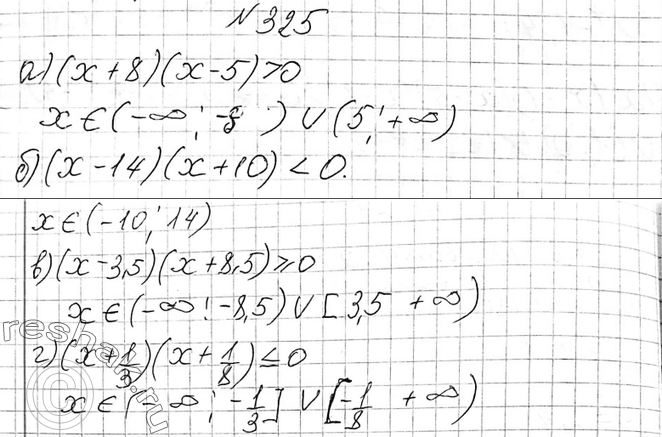 №325
а) (x+8)(x-5)>0
x∈(-∞; -8) ∪ (5; +∞)
б) (x-14)(x+10)<0.
x∈(-10; 14)
в) (x-3,5)(x+8,5)≥0
x∈(-∞; -8,5) ∪ [3,5 +∞)
г) (x+1/3)(x+1/8)≤0
x∈(-∞; -1/3] ∪ [-1/8 +∞)
reshak.ru